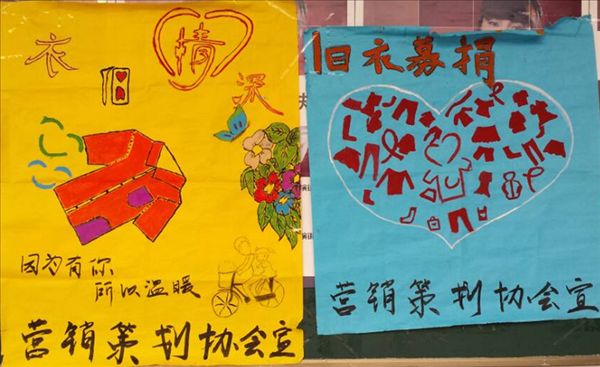 衣旧情深
因为有你
所以温暖
营销策划协会宣
旧衣募捐
营销策划协会宣